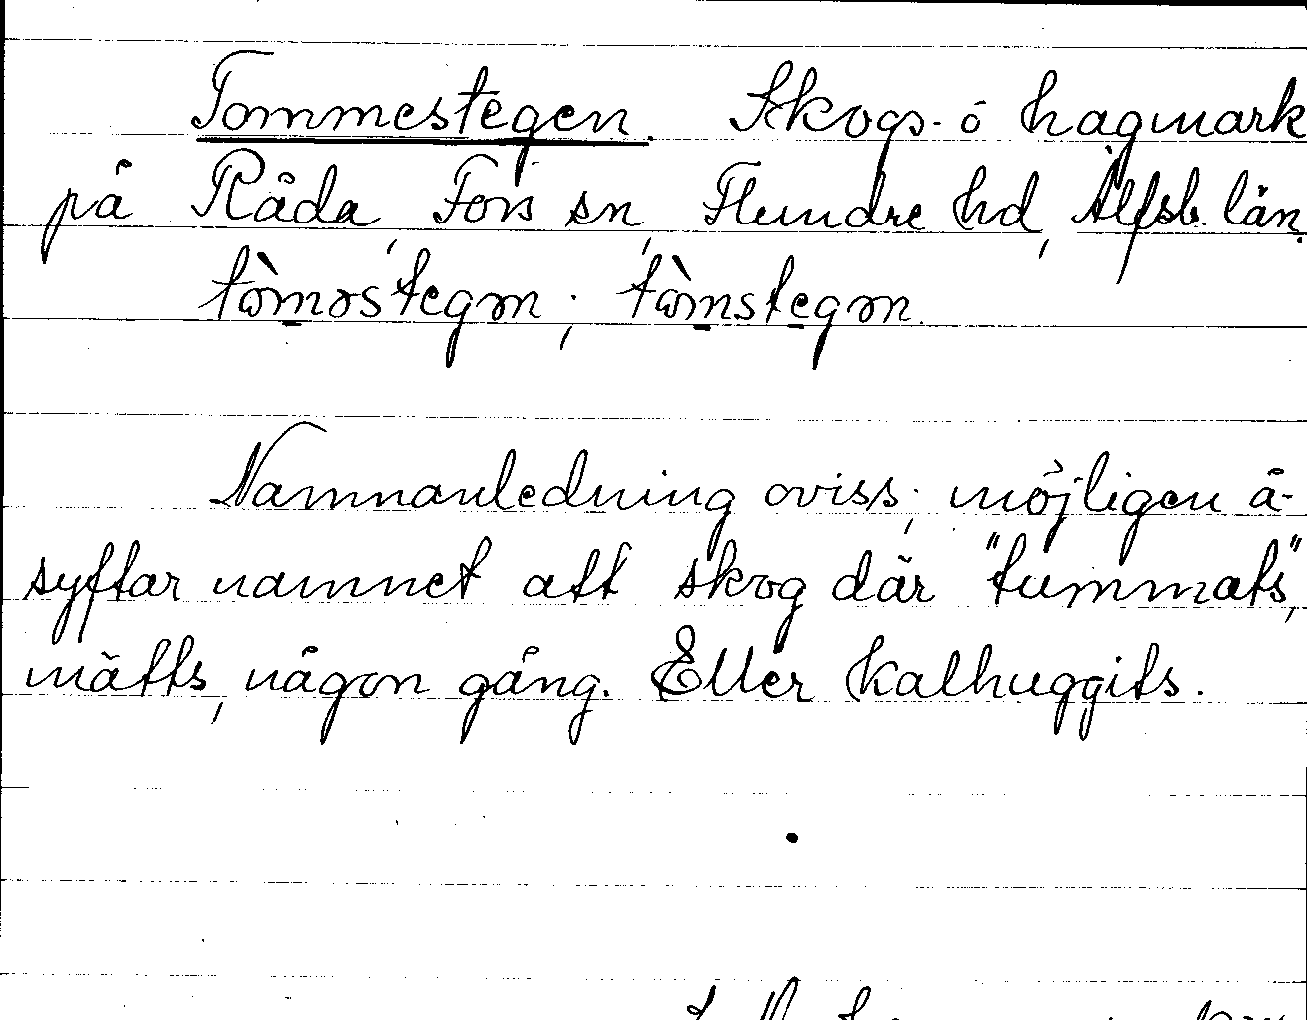 Tommestegen. Skogs- o hagmark
på Råda, Fors sn, Flundre hd, Älfsb. län.
tòməstegən; tòmstegən.
Namnanledning oviss; möjligen å-
syftar namnet att skog där "tummats",
mätts, någon gång. Eller kalhuggits.